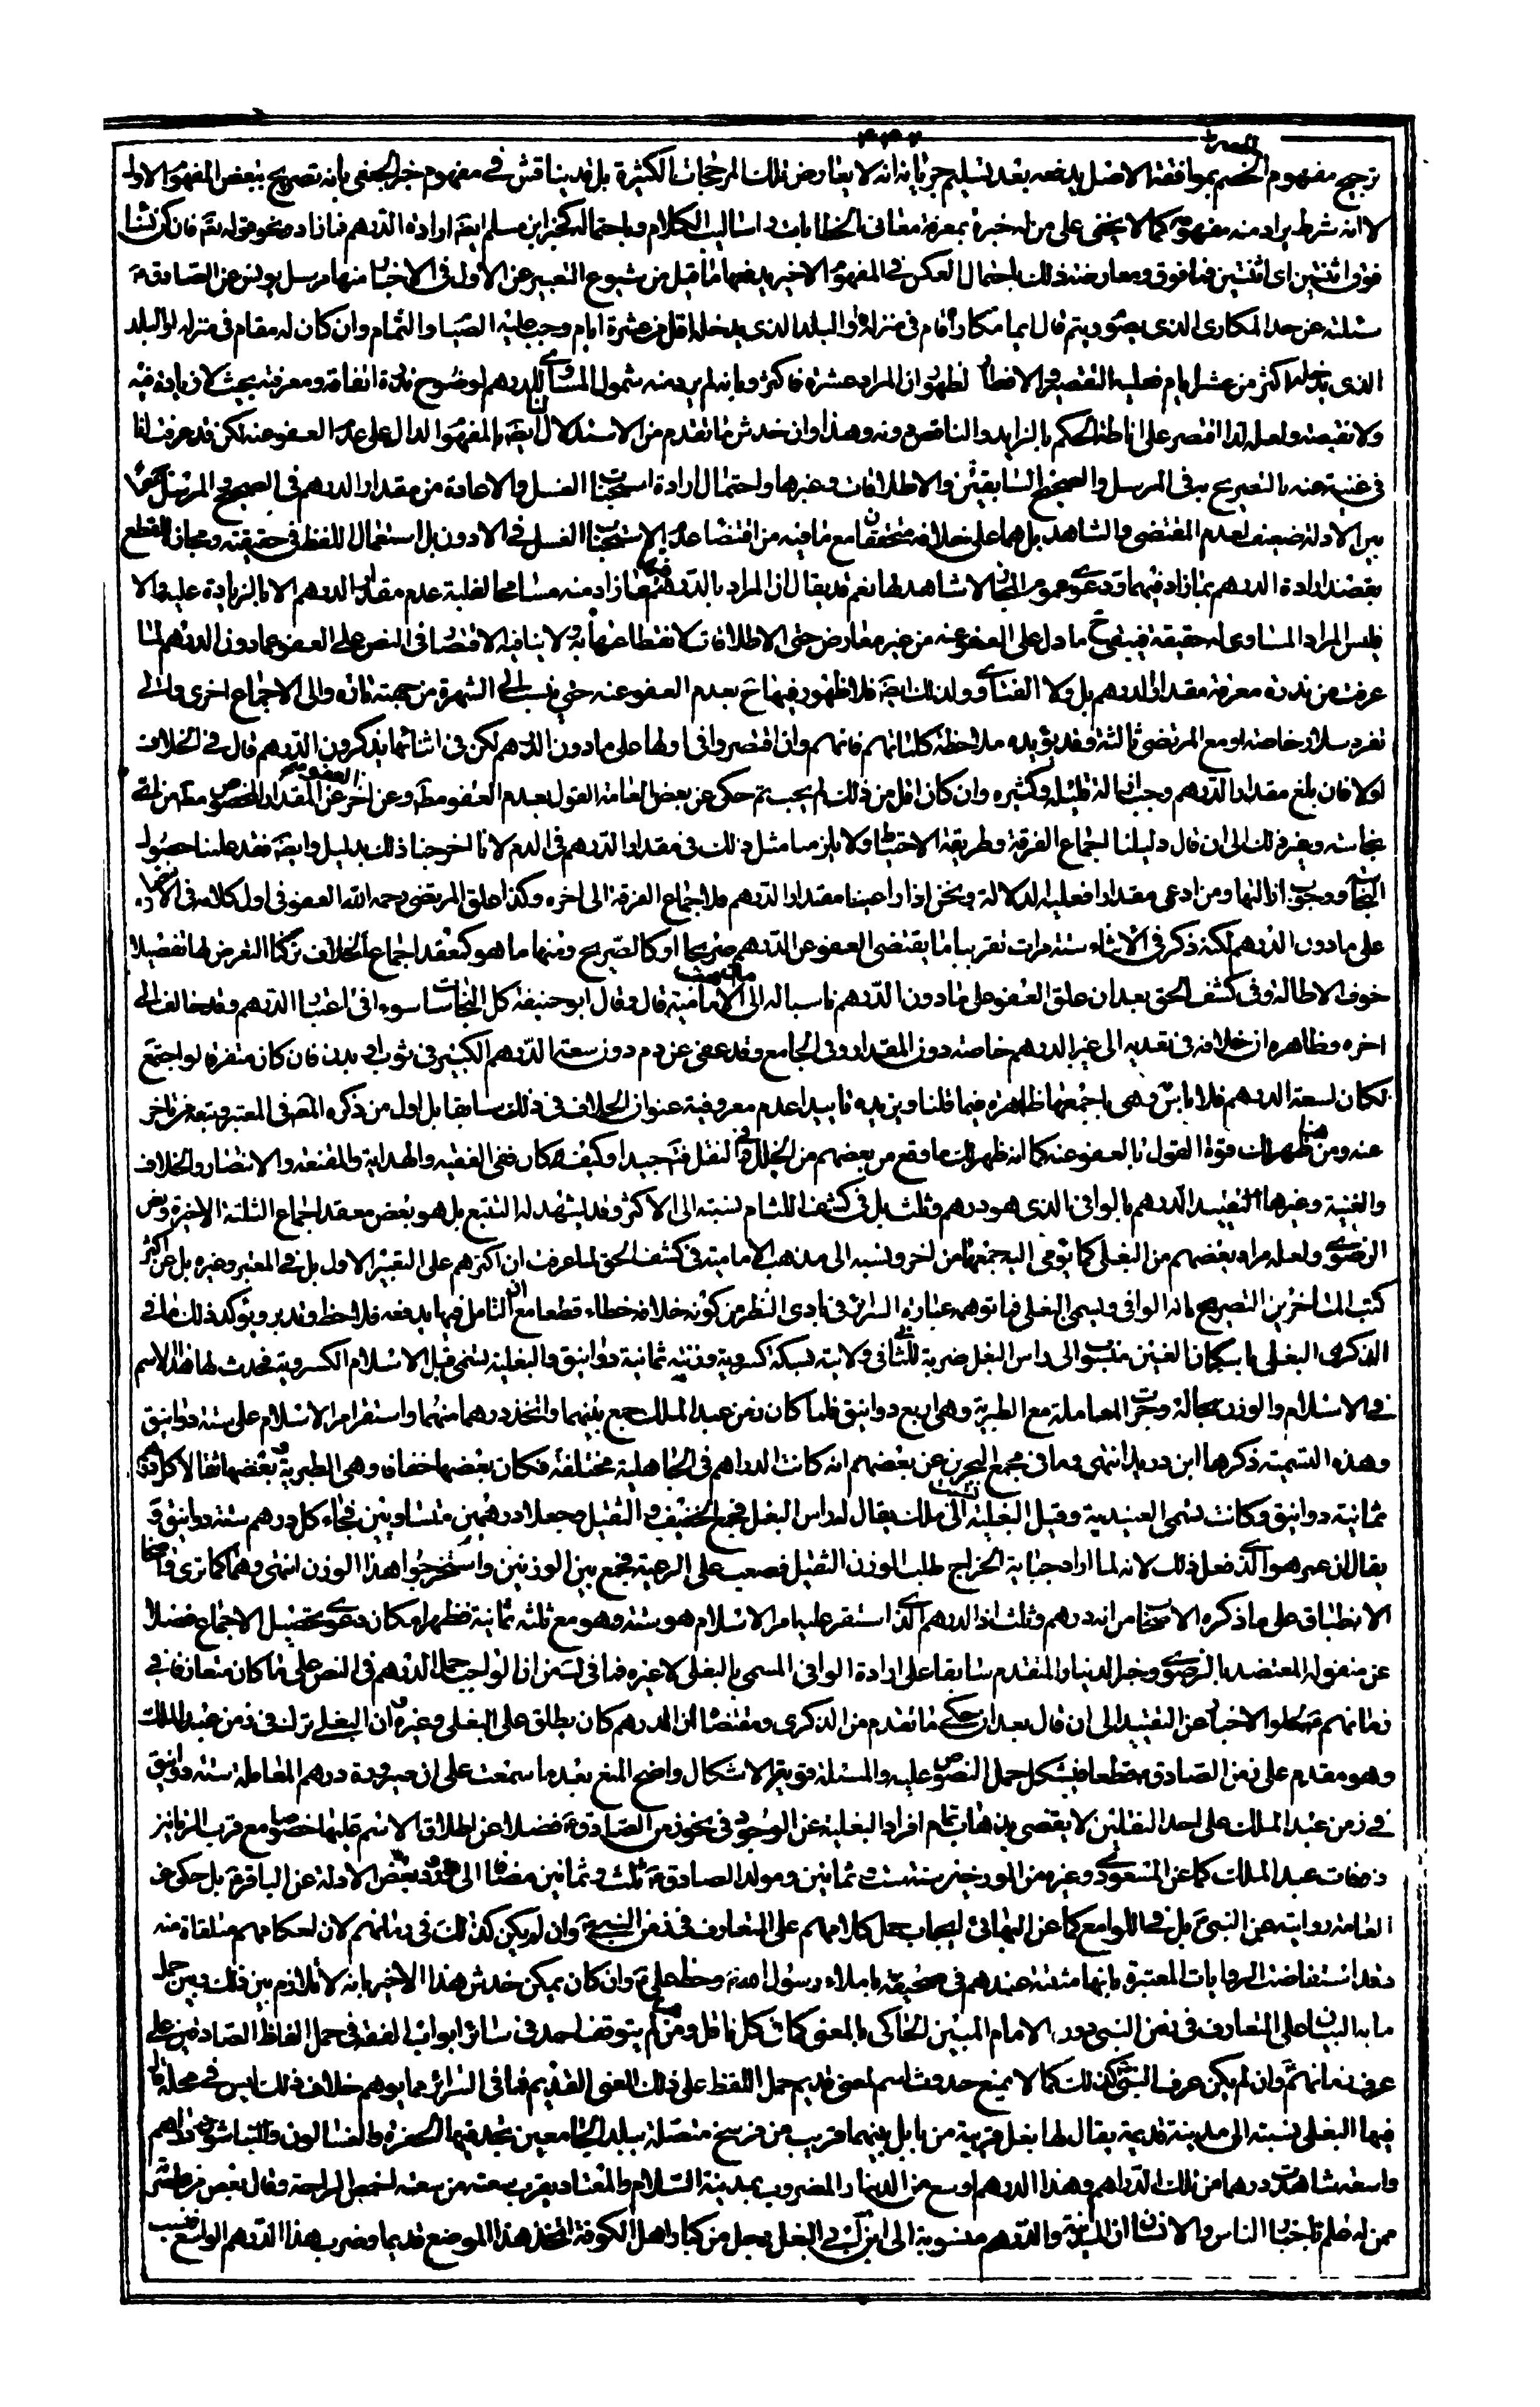 ترجيح مفهوم الخصم بموافقة الاصل يدفعه بعد تسليم جريانه انه لا يعارض تلك المرجحات الكثيرة بل قد يناقش في مفهوم خبر الجعفي بانه تصريح ببعض المفهوم الاول
لا انه شرط يراد منه مفهومه كما لا يخفى على من له خبرة بمعرفة معاني الخطابات واساليب الكلام وباحتماله كخبر ابن مسلم ايضا ارادة الدرهم فما زاد نحو قوله تعالى فان كن نساء
فوق اثنتين اى اثنتين فما فوق ومعارضته ذلك باحتمال العكس في المفهوم الاخير يدفعها ما قيل من شيوع التعبير عن الاول في الاخبار منها مرسل يونس عن الصادق ع
سئلته عن حد المكارى الذى يصوم ويتم قال ايما مكار اقام في منزله او البلد الذى يدخله اقل من عشرة ايام وجب عليه الصيام والتمام وان كان له مقام في منزله او البلد
الذى يدخله اكثر من عشرة ايام فعليه التقصير والافطار لظهور ان المراد عشرة فاكثر وبانه لم يرد منه شمول المساوى للدرهم لوضوح ندرة اتفاقه ومعرفته بحيث لا زيادة فيه
ولا نقيصة ولعله لذا اقتصر على اناطة الحكم بالزايد والناقص دونه وهذا وان خدش ما تقدم من الاستدلال ايضا بالمفهوم الدال على عدم العفو عنه لكن قد عرفت انا
في غنية عنه بالتصريح به في المرسل والصحيح السابقين والاطلاقات وغيرها واحتمال ارادة استحباب الغسل والاعادة من مقدار الدرهم في الصحيح والمرسل جمعا
بين الادلة ضعيف لعدم المقتضى والشاهد بل هما على خلافه متحققان مع ما فيه من اقتضاء عدم الاستحباب الغسل في الادون بل استعمال اللفظ في حقيقته ومجازه للقطع
بقصد ارادة الدرهم بما زاد فيهما ودعوى عموم المجاز لا شاهد لها نعم قد يقال ان المراد بالدرهم فما زاد منه مسامحا لغلبة عدم مقدار الدرهم الا بالزيادة عليه والا
فليس المراد المساوى له حقيقة فيبقى ح ما دل على العفو عنه من غير معارض حتى الاطلاقات لانقطاعها به ولا ينافيه الاقتصار في النص على العفو عما دون الدرهم لما
عرفت من ندرة معرفة مقدار الدرهم بل ولا الفتاوى ولذلك ايضا فلا ظهور فيها ح بعدم العفو عنه حتى ينسب الى الشهرة من جهته تارة والى الاجماع اخرى والى
تفرد سلار خاصة او مع المرتضى ثالثة وقد يؤيده ملاحظة كلماتهم فانهم وان اقتصروا في اولها على ما دون الدرهم لكن في اثنائها يذكرون الدرهم قال في الخلاف
اولا فان بلغ مقدار الدرهم وجب ازالة قليله وكثيره وان كان اقل من ذلك لم يجب ثم حكى عن بعض العامة القول بعدم العفو مطلقا وعن اخر العفو عن المقدار المخصوص مطلقا من اية
نجاسة وغير ذلك الى ان قال دليلنا اجماع الفرقة وطريقة الاحتياط ولا يلزمنا مثل ذلك في مقدار الدرهم في الدم لانا اخرجنا ذلك بدليل وايضا فقد علمنا حصول
النجاسة ووجوب ازالتها ومن ادعى مقدارا فعليه الدلالة ونحن اذا راعينا مقدار الدرهم فلاجماع الفرقة الى اخره وكذا علق المرتضى رحمه الله العفو في اول كلامه في الانتصار
على ما دون الدرهم لكنه ذكر في الاثناء ستة مرات تقريبا ما يقتضى العفو عن الدرهم صريحا او كالصريح ومنها ما هو كمعقد اجماع الخلاف تركنا التعرض لها تفصيلا
خوف الاطالة وفي كشف الحق بعد ان علق العفو على ما دون الدرهم ناسبا له الى الامامية قال وقال ابو حنيفة كل النجاسات سواء في اعتبار الدرهم وقد خالف الى
اخره وظاهره ان خلافه في تعديه الى غير الدم خاصة دون المقدار وفي الجامع وقد عفى عن دم دون سعة الدرهم الكبير في ثوب او بدن فان كان متفرقا لو اجتمع
لكان لسعة الدرهم فلا باس وهي باجمعها ظاهرة فيما قلنا ويزيده تاييدا عدم معروفية عنوان الخلاف في ذلك سابقا بل اول من ذكره المصنف في المعتبر وتبعه من تاخر
عنه ومن هنا ظهر لك قوة القول بالعفو عنه كما انه ظهر لك ما وقع من بعضهم من الخلل في النقل فتامل جيدا وكيف كان ففي الفقيه والهداية والمقنعة والانتصار والخلاف
والغنية وغيرها التقييد الدرهم بالوافي الذي هو درهم وثلث بل في كشف اللثام نسبته الى الاكثر وقد يشهد له التتبع بل هو بعض معقد اجماع الثلثة الاخيرة وبعض
الرضوى ولعله مراد بعضهم من البغلى كما يؤمى اليه جمعهما من اخر ونسبه الى مذهب الامامية في كشف الحق لما عرفت ان اكثرهم على التعبير الاول بل في المعتبر وغيره بل عن اكثر
كتب المتاخرين التصريح بانه الوافي ويسمى البغلى فما توهمه عبارة السرائر في بادى النظر من كونه خلافه خطاء قطعا مع ان التامل فيها يدفعه فلاحظ وتدبر ويؤكد ذلك ما في
الذكرى البغلى باسكان الغين منسوب الى راس البغل ضربه للثانى في ولايته بسكة كسروية وزنته ثمانية دوانيق والبغلية تسمى قبل الاسلام الكسروية فحدث لها هذا الاسم
في الاسلام والوزن بحاله وجرت المعاملة مع الطبرية وهي اربع دوانيق فلما كان زمن عبد الملك جمع بينهما واتخذ درهما منهما واستقر امر الاسلام على ستة دوانيق
وهذه التسمية ذكرها ابن دريد انتهى وما في مجمع البحرين عن بعضهم انه كانت الدراهم في الجاهلية مختلفة فكان بعضها خفافا وهي الطبرية وبعضها ثقالا كل درهم
ثمانية دوانيق وكانت تسمى العبدية وقيل البغلية نسبت الى ملك يقال له راس البغل فجمع الخفيف والثقيل وجعلا درهمين متساويين فجاء كل درهم ستة دوانيق و
يقال ان عمر هو الذى فعل ذلك لانه لما اراد جباية الخراج طلب الوزن الثقيل فصعب على الرعية فجمع بين الوزنين واستخرجوا هذا الوزن انتهى وهما كما ترى واضحا
الانطباق على ما ذكره الاصحاب من انه درهم وثلث اذ الدرهم الذى استقر عليه امر الاسلام هو ستة وهو مع ثلثه ثمانية فظهر امكان دعوى تحصيل الاجماع فضلا
عن منقوله المعتضد بالرضوى وخبر الدينار المتقدم سابقا على ارادة الوافي المسمى بالبغلى لا غيره فما في لسن من ان الواجب حمل الدرهم في النص على ما كان متعارفا في
زمانهم لخلو الاخبار عن التقييد الى ان قال بعد ان حكى ما تقدم من الذكرى ومقتضاه ان الدرهم كان يطلق على البغلى وغيره وان البغلى ترك في زمن عبد الملك
وهو مقدم على زمن الصادق ع قطعا فيشكل حمل النصوص عليه والمسئلة قوية الاشكال واضح المنع بعد ما سمعت على ان صيرورة درهم المعاملة ستة دوانيق
في زمن عبد الملك على احد النقلين لا يقضى بذهاب تمام افراد البغلية عن الوجود في نحو زمن الصادق ع فضلا عن اطلاق الاسم عليها خصوصا مع قرب الزمانين
اذ مات عبد الملك كما عن المسعودى وغيره من المورخين سنة ست وثمانين ومولد الصادق ع ثلث وثمانين مضافا الى ورود بعض الادلة عن الباقر ع بل حكى عن
العامة روايته عن النبي ص بل في اللوامع كما عن البهائى ايجاب حمل كلامهم على المتعارف في زمن النبي ص وان لم يكن كذلك في زمانهم لان احكامهم متلقاة منه
فقد استفاضت الروايات المعتبرة بانها مثبتة عندهم في صحيفة باملاء رسول الله ص وخط علي ع وان كان يمكن خدش هذا الاخير بانه لا تلازم بين ذلك وبين حمل
ما به البيان على المتعارف في زمن النبي دون الامام المبين الحاكى بالمعنى كما شان كل ناقل ومن ثم لم يتوقف احد في سائر ابواب الفقه في حمل الفاظ الصادقين على
عرف زمانهم وان لم يكن عرف النبي كذلك كما لا يمنع حدوث اسم لمعنى قديم حمل اللفظ على ذلك المعنى القديم فما في السرائر مما يوهم خلاف ذلك ليس في محله قال
فيها البغلى نسبته الى مدينة قديمة يقال لها بغل قريبة من بابل بينهما قريب من فرسخ متصلة ببلد الجامعين يجد فيها الحفرة والغسالون والنباشون دراهم
واسعة شاهدت درهما من تلك الدراهم وهذا الدرهم اوسع من الدينار المضروب بمدينة السلام والمعتاد يقرب سعته من سعة اخمص الراحة وقال بعض من عاصرته
ممن له علم باخبار الناس والانساب ان المدينة والدرهم منسوبة الى ابن ابى البغل رجل من كبار اهل الكوفة اتخذ هذا الموضع قديما وضرب هذا الدرهم الواسع فنسب